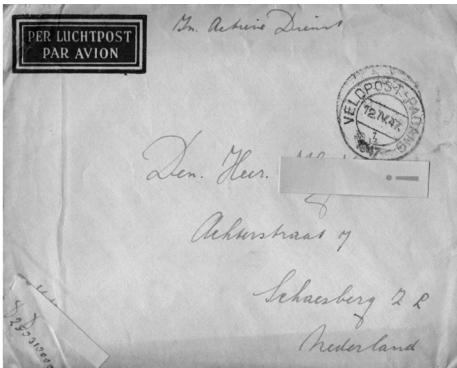 PER LUCHTPOST
PAR AVION
In Actieve Dienst
VELDPOST-PADANG
12.IV.47.
3
1947
Den Heer.
Achterstraat 7
Schaesberg Z L
Nederland